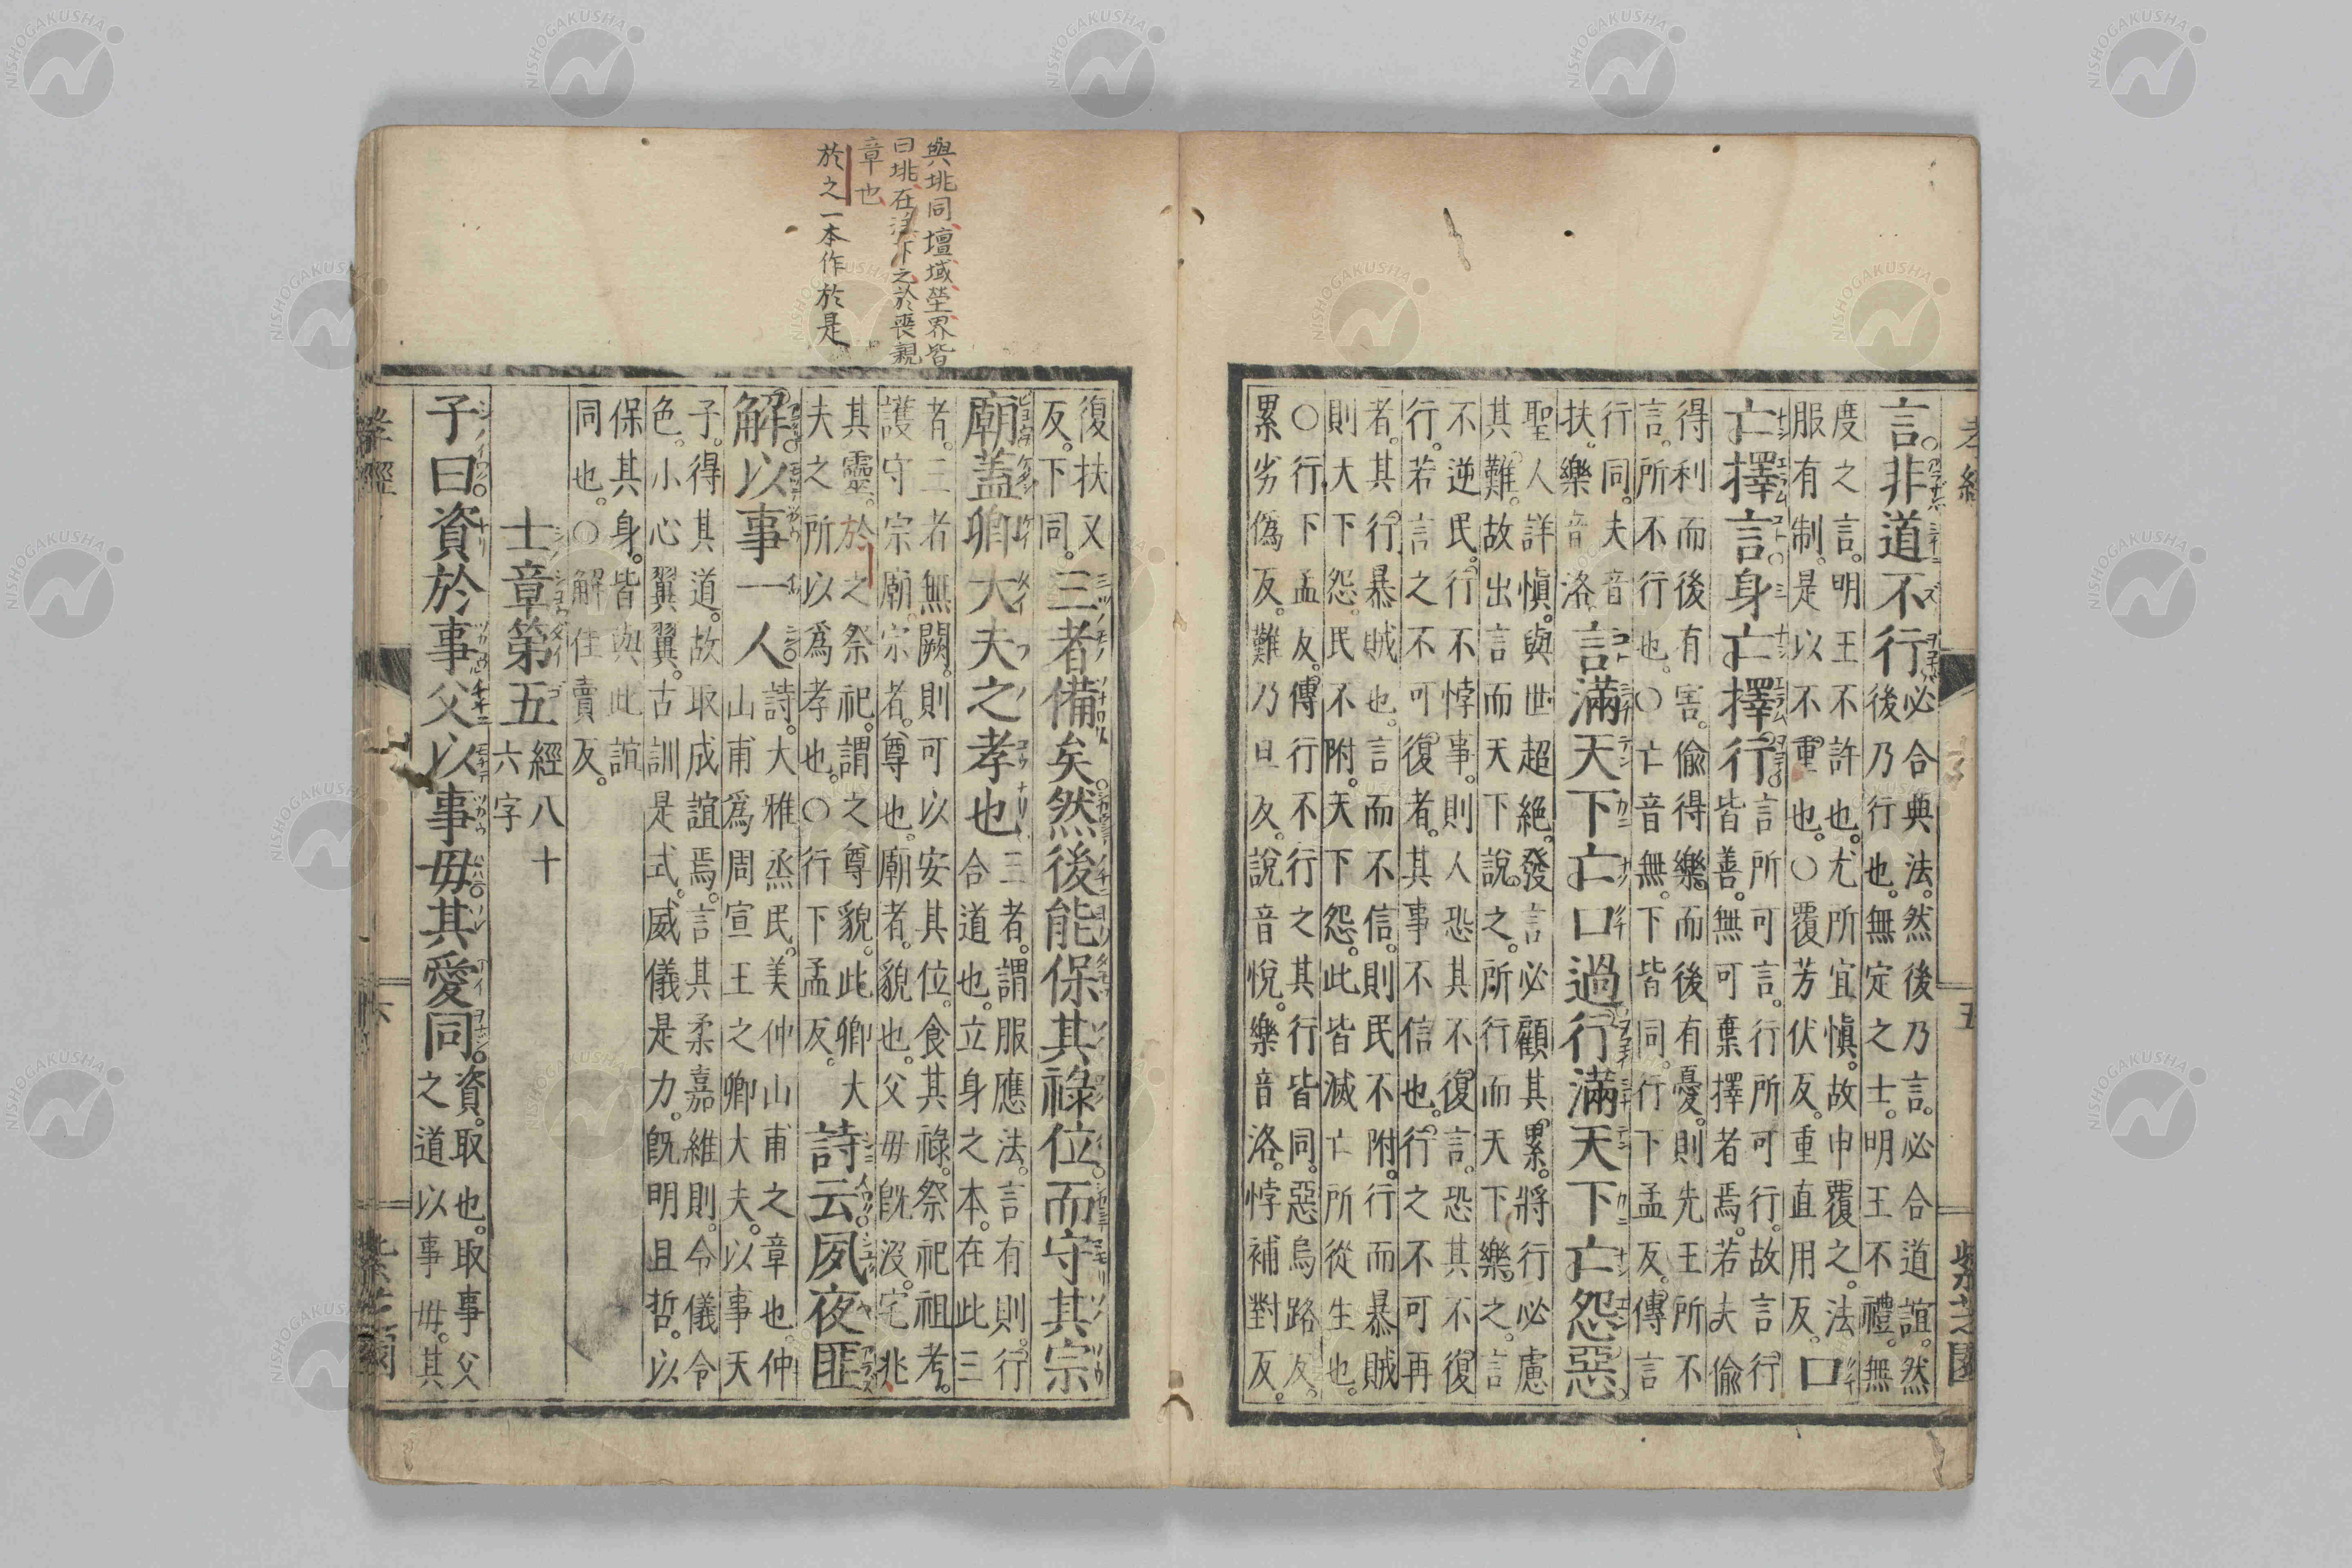 言。非道不行必合典法。然後乃言。必合道誼。然
後乃行也。無定之士。明王不禮。無
度之言。明王不許也。尤所宜愼。故申覆之。法
服有制。是以不重也。○覆芳伏反。重直用反。口
亡擇言身亡擇行。言所可言。行所可行。故言行
皆善。無可棄擇者焉。若夫偷
得利而後有害。偷得樂而後有憂。則先王所不
言。所不行也。○亡音無。下皆同。行下孟反。傳言
行同。夫音
扶。樂音洛
言滿天下亡口過行滿天下亡怨惡。
聖人詳愼。與世超絶。發言必顧其累。將行必慮
其難。故出言而天下說之。所行而天下樂之。言
不逆民。行不悖事。則人恐其不復言。恐其不復
行。若言之不可復者。其事不信也。行之不可再
者。其行暴賊也。言而不信。則民不附。行而暴賊
則天下怨。民不附。天下怨。此皆滅亡所從生也。
○行下孟反。傳行不行行之其行皆同。惡烏路反。
累劣僞反。難乃旦反。說音悅。樂音洛。悖補對反。
孝經
五
紫芝園
復扶又
反。下同。
三者備矣然後能保其祿位。而守其宗
廟蓋卿大夫之孝也三者。謂服應法。言有則。行
合道也。立身之本。在此三
者。三者無闕。則可以安其位。食其祿。祭祀祖考。
護守宗廟。宗者。尊也。廟者。貌也。父母旣沒。宅兆
其靈。於之祭祀。謂之尊貌。此卿大
夫之所以爲孝也。○行下孟反。
詩云。夙夜匪
解以事一人詩。大雅烝民。美仲山甫之章也。仲
山甫爲周宣王之卿大夫。以事天
子。得其道。故取成誼焉。言其柔嘉維則。令儀令
色。小心翼翼。古訓是式。威儀是力。旣明且哲。以
保其身。皆與此誼
同也。○解佳賣反。
士章第五經八十
六字
子曰。資於事父以事母。其愛同。資。取也。取事父
之道以事母。其
孝經
六
紫芝園
與垗同、壇域塋界皆
曰垗、在下之於喪親
章也
於之一本作於是
NISHOGAKUSHA